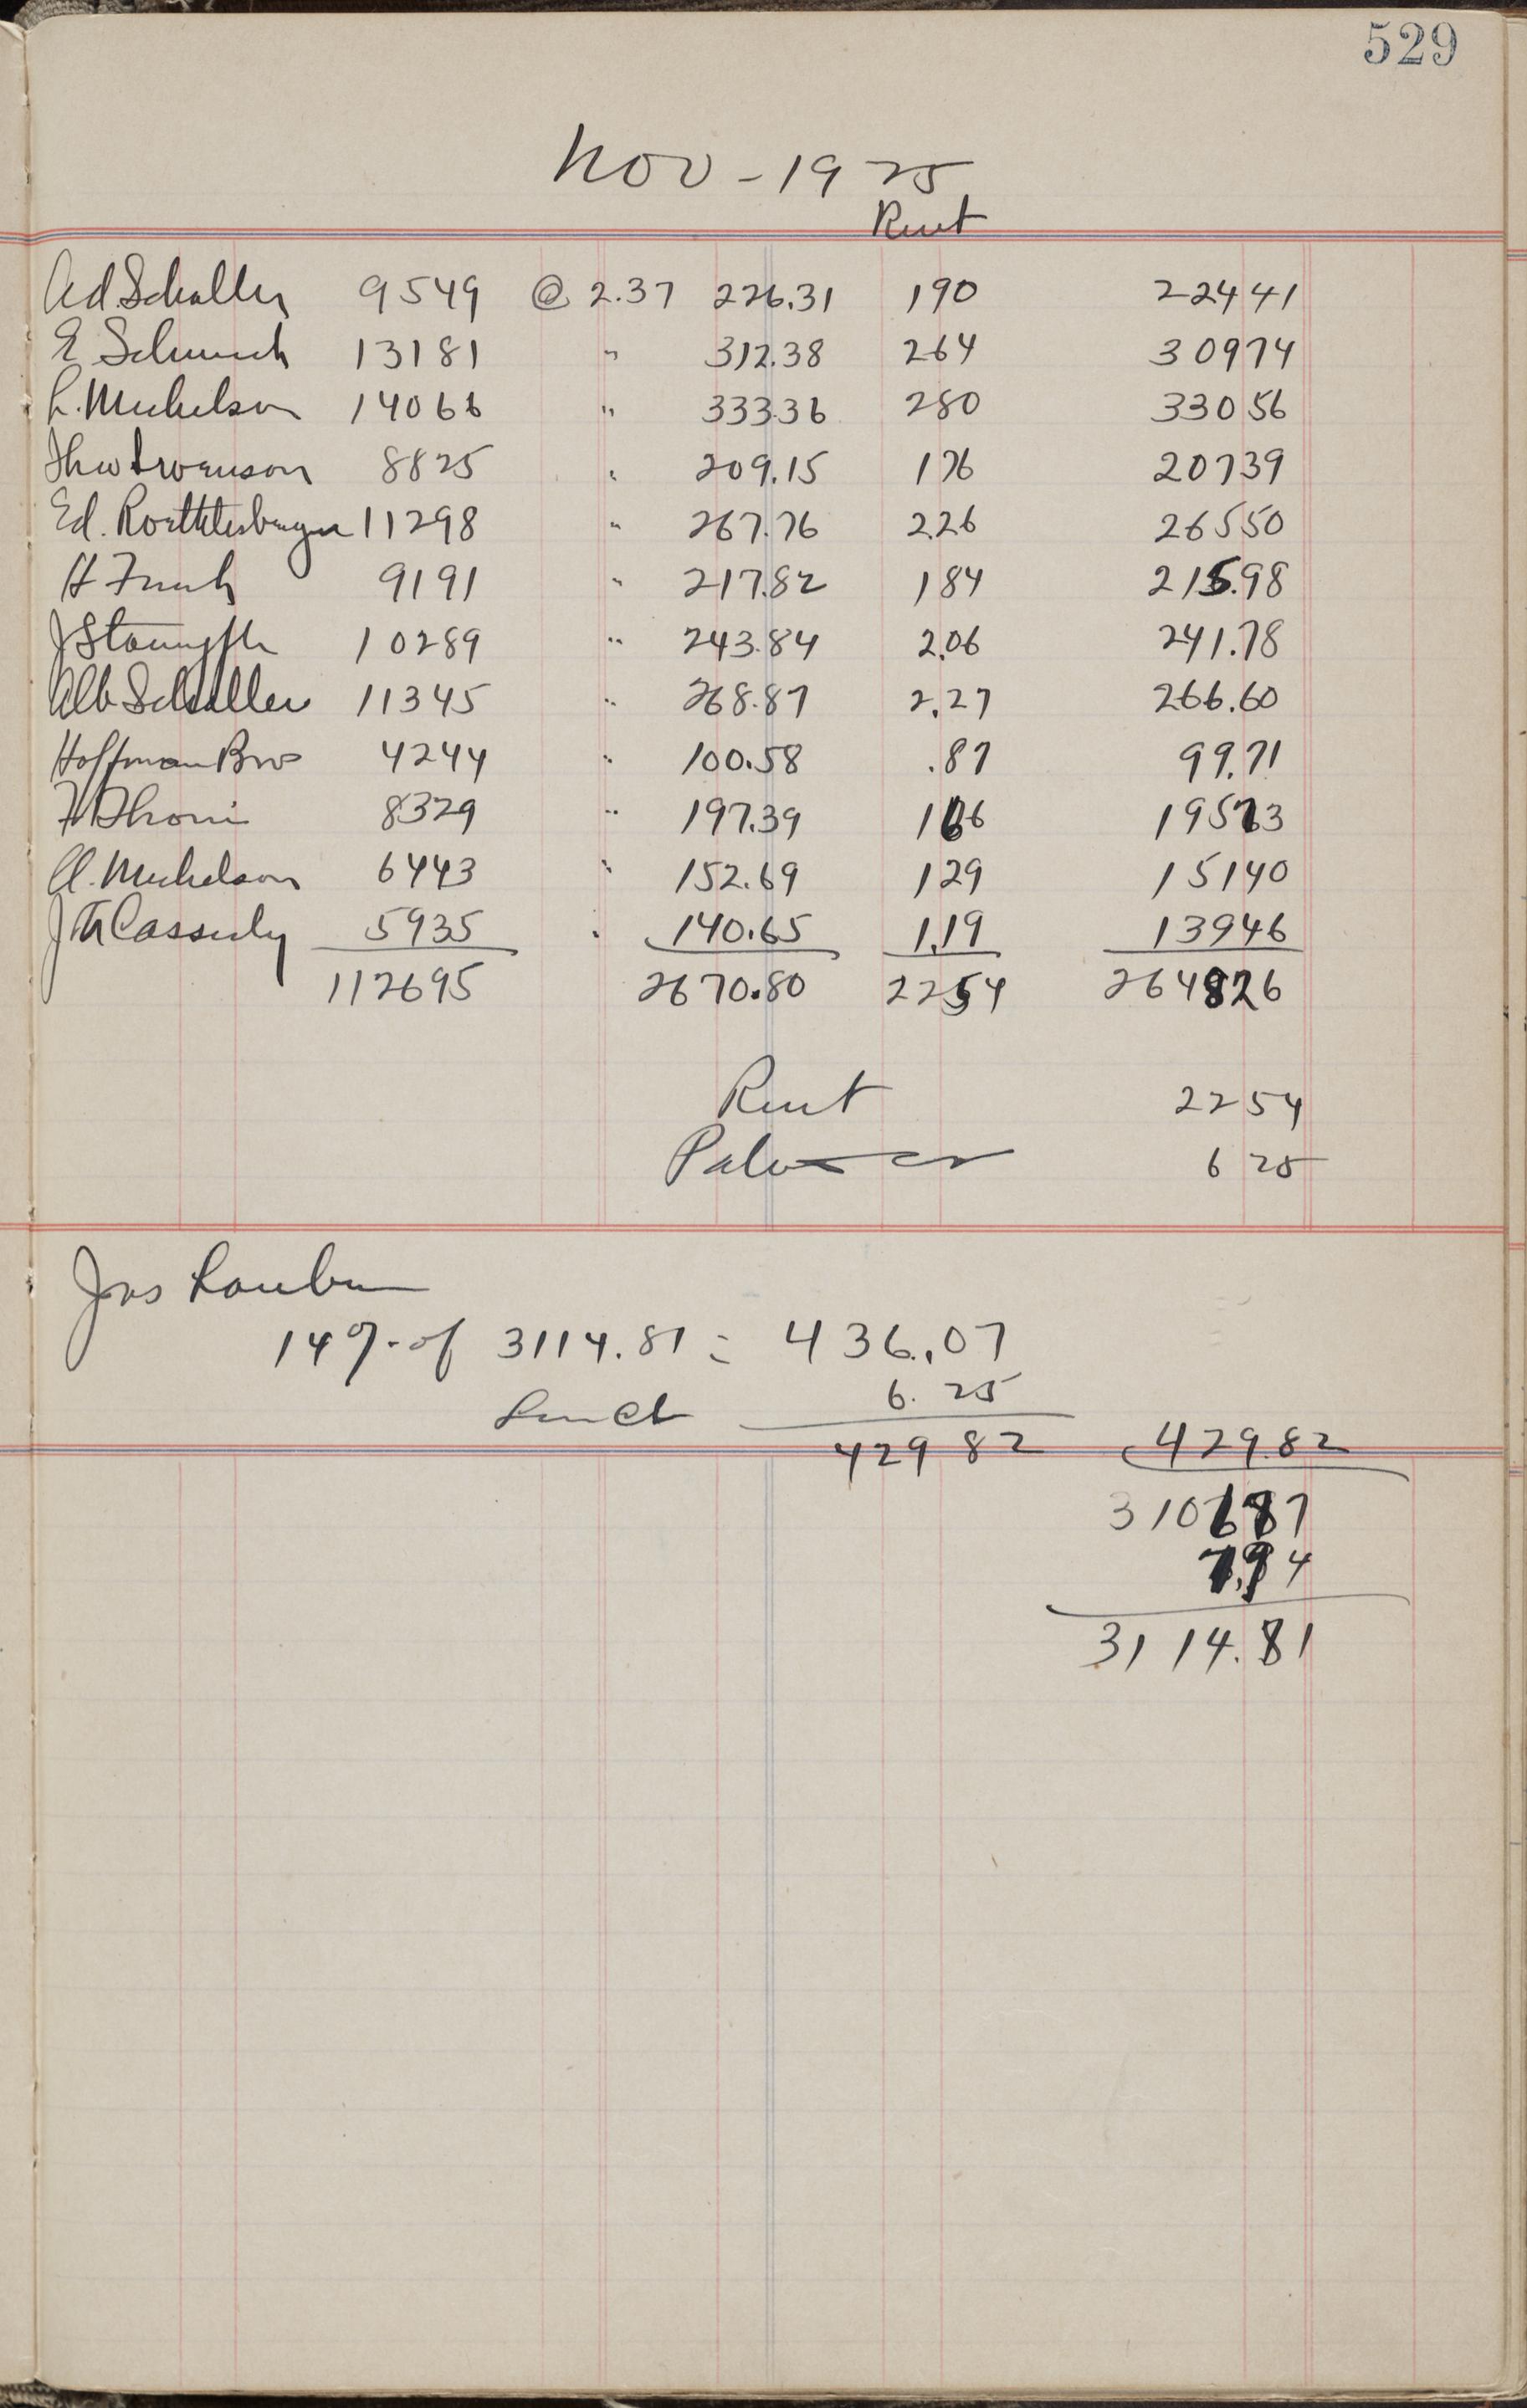 529
Nov - 1925
Rent
Ad Schaller 9549 @ 2.37 226.31 190 22441
E Schmuck 13181 " 312.38 264 30974
L. Michelson 14066 " 333.36 280 33056
Theo Swenson 8825 " 209.15 176 20739
Ed. 11298 " 267.76 226 26550
H Funk 9191 " 217.82 184 215.98
J 10289 " 243.84 2.06 241.78
Alb Schaller 11345 " 268.87 2.27 266.60
Hoffman Bros 4244 " 100.58 .87 99.71
F Thoni 8329 " 197.39 166 19573
A. Michelson 6443 " 152.69 129 15140
J Cassidy 5935 " 140.65 1.19 13946
112695 2670.80 2254 264826
Rent 2254
6 25
Jos Lauber
14% of 3114.81 = 436.07
6.25
429 82 429.82
310687
7.94
3114.81